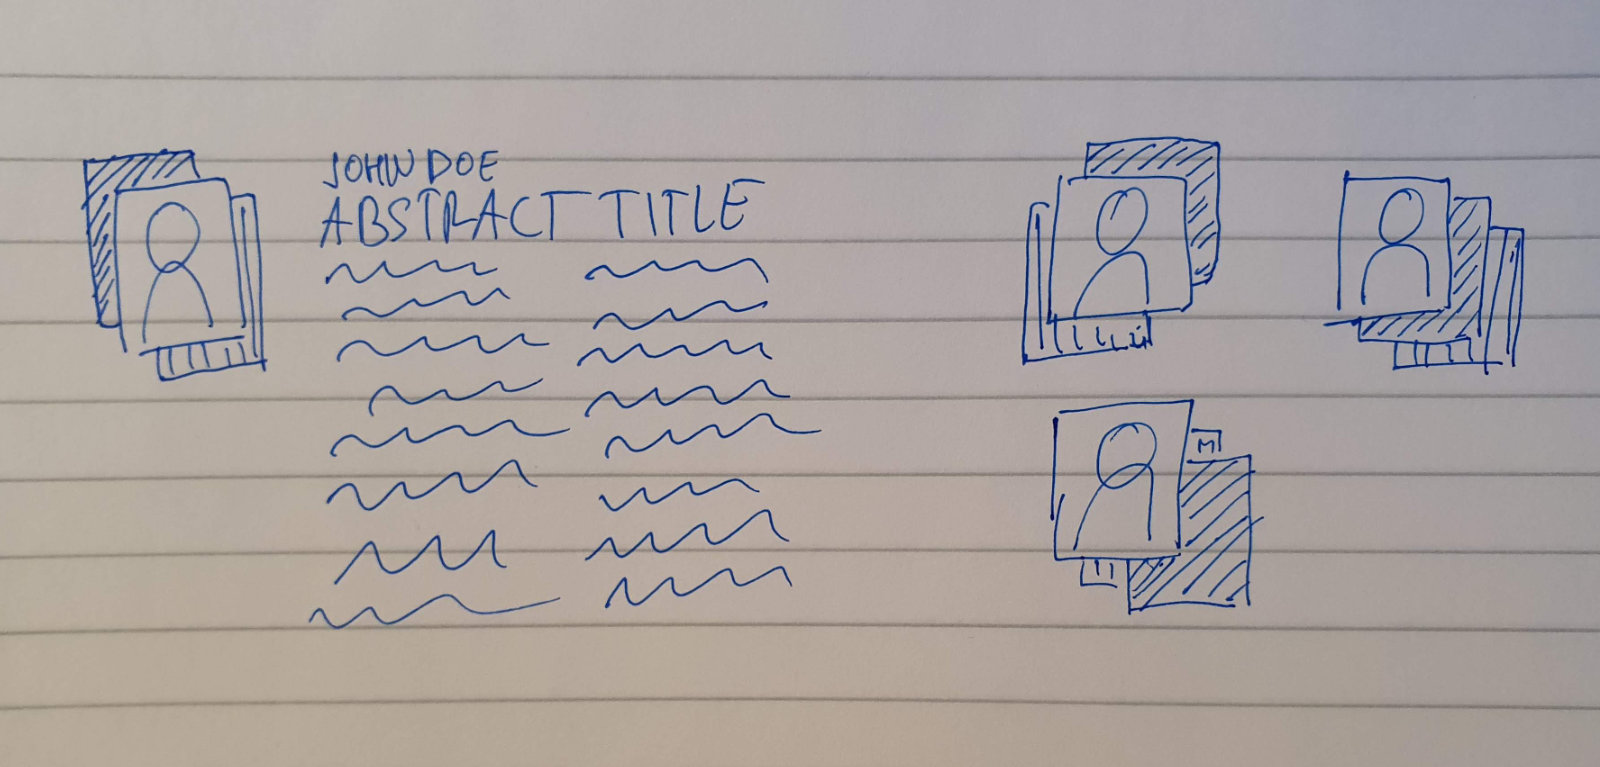 JOHN DOE
ABSTRACT TITLE
M